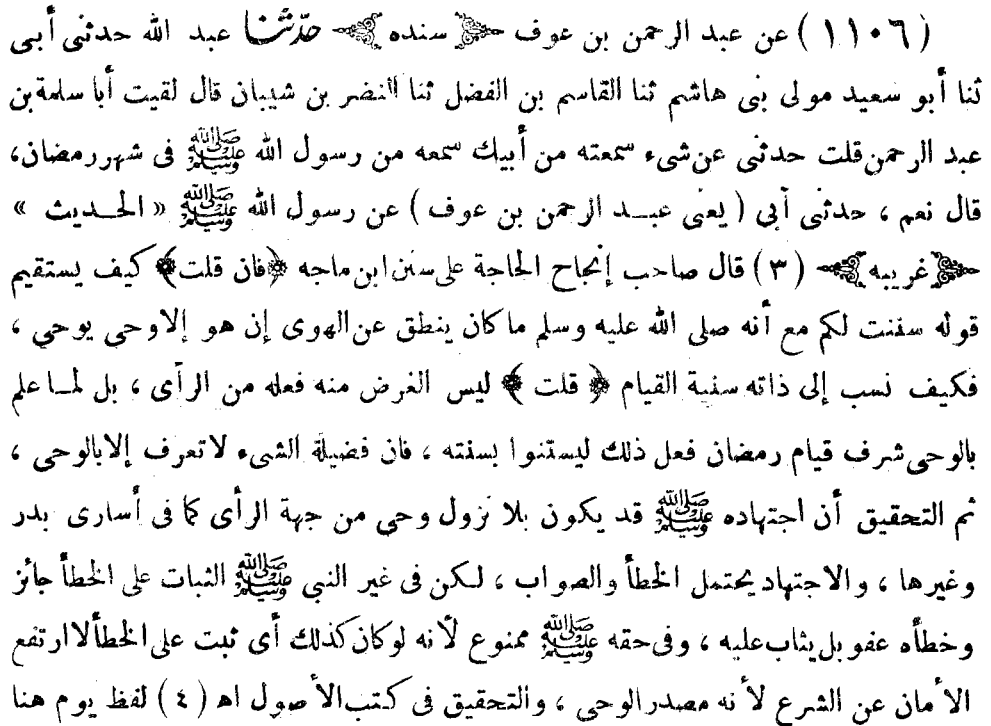 (١١٠٦) عن عبد الرحمن بن عوف ﴿سنده﴾ حدّثنا عبد الله حدثنى أبى
ثنا أبو سعيد مولى بنى هاشم ثنا القاسم بن الفضل ثنا النضر بن شيبان قال لقيت أبا سلمة بن
عبد الرحمن قلت حدثنى عن شىء سمعته من أبيك سمعه من رسول الله ﷺ فى شهر رمضان،
قال نعم ، حدثنى أبى ( يعنى عبد الرحمن بن عوف ) عن رسول الله ﷺ « الحديث »
﴿غريبه﴾ (٣) قال صاحب إنجاح الحاجة على سنن ابن ماجه ﴿فان قلت﴾ كيف يستقيم
قوله سننت لكم مع أنه صلى الله عليه وسلم ما كان ينطق عن الهوى إن هو إلا وحى يوحى ،
فكيف نسب إلى ذاته سنية القيام ﴿ قلت ﴾ ليس الغرض منه فعله من الرأى ، بل لما علم
بالوحى شرف قيام رمضان فعل ذلك ليستنوا بسنته ، فان فضيلة الشىء لا تعرف إلا بالوحى ،
ثم التحقيق أن اجتهاده ﷺ قد يكون بلا نزول وحى من جهة الرأى كما فى أسارى بدر
وغيرها ، والاجتهاد يحتمل الخطأ والصواب ، لكن فى غير النبي ﷺ الثبات على الخطأ جائز
وخطأه عفو بل يثاب عليه ، وفى حقه ﷺ ممنوع لأنه لو كان كذلك أى ثبت على الخطألا ارتفع
الأمان عن الشرع لأنه مصدر الوحى ، والتحقيق فى كتب الأصول اهـ (٤) لفظ يوم هنا